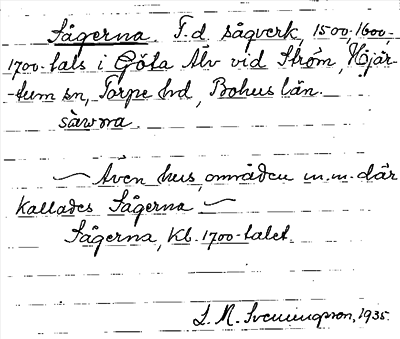 Sågerna. F.d sågverk, 1500, 1600-
1700-tals i Göta Älv vid Ström, Hjär-
-tum sn, Torpe hd, Bohus län.
sàwɷṇa.
~ Även hus, områden m.m. där
kallades Sågerna ~
Sågerna, Kb. 1700-talet.
L. M. Svenungsson, 1935.